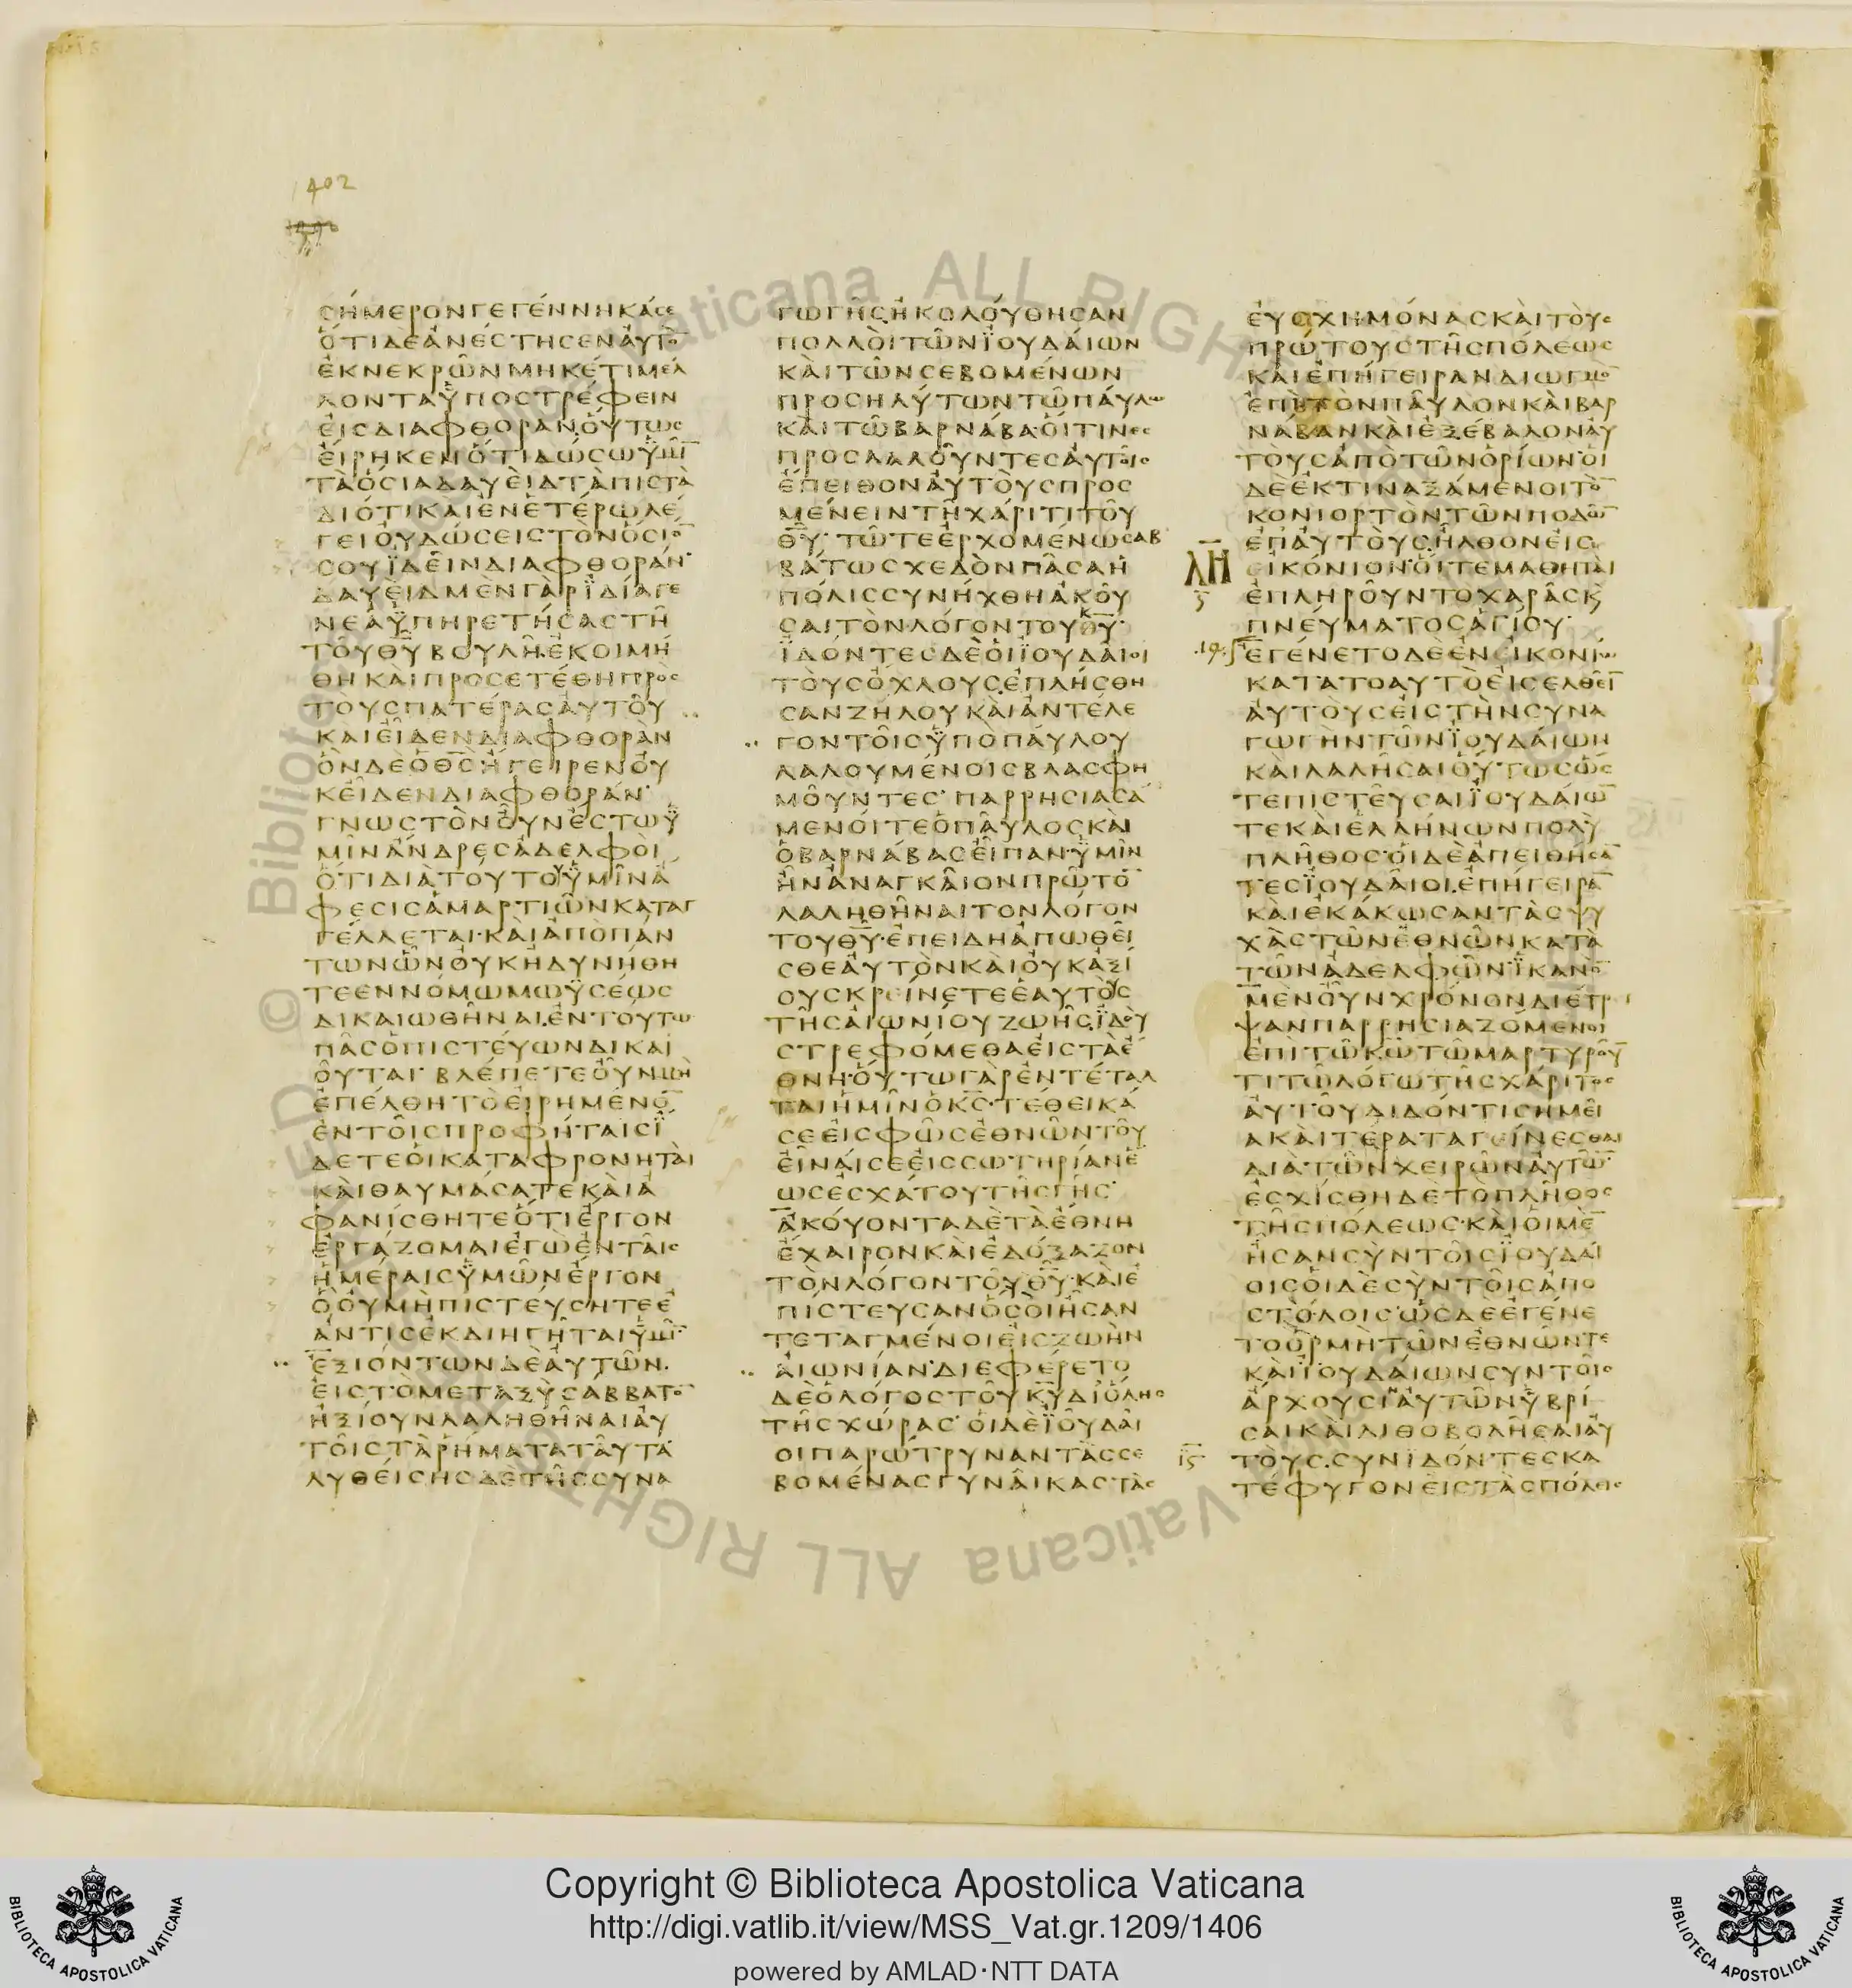 1402
ϹΗΜΕΡΟΝΓΕΓΕΝΝΗΚΑϹΕ
ΟΤΙΔΕΑΝΕϹΤΗϹΕΝΑΥΤΟ̅
ΕΚΝΕΚΡΩΝΜΗΚΕΤΙΜΕΛ
ΛΟΝΤΑΫΠΟϹΤΡΕΦΕΙΝ
ΕΙϹΔΙΑΦΘΟΡΑΝΟΥΤΩϹ
ΕΙΡΗΚΕΝΟΤΙΔΩϹΩΫΜΙ̅
ΤΑΟϹΙΑΔΑΥΕΙΔΤΑΠΙϹΤΑ
ΔΙΟΤΙΚΑΙΕΝΕΤΕΡΩΛΕ
ΓΕΙΟΥΔΩϹΕΙϹΤΟΝΟϹΙΟ̅
ϹΟΥΪΔΕΙΝΔΙΑΦΘΟΡΑΝ
ΔΑΥΕΙΔΜΕΝΓΑΡΪΔΙΑΓΕ
ΝΕΑΫΠΗΡΕΤΗϹΑϹΤΗ
ΤΟΥΘ̅Υ̅ΒΟΥΛΗΕΚΟΙΜΗ
ΘΗΚΑΙΠΡΟϹΕΤΕΘΗΠΡΟϹ
ΤΟΥϹΠΑΤΕΡΑϹΑΥΤΟΥ
ΚΑΙΕΙΔΕΝΔΙΑΦΘΟΡΑΝ
ΟΝΔΕΟΘ̅Ϲ̅ΗΓΕΙΡΕΝΟΥ
ΚΕΙΔΕΝΔΙΑΦΘΟΡΑΝ
ΓΝΩϹΤΟΝΟΥΝΕϹΤΩΫ
ΜΙΝΑΝΔΡΕϹΑΔΕΛΦΟΙ
ΟΤΙΔΙΑΤΟΥΤΟΫΜΙΝΑ
ΦΕϹΙϹΑΜΑΡΤΙΩΝΚΑΤΑΓ
ΓΕΛΛΕΤΑΙ·ΚΑΙΑΠΟΠΑΝ
ΤΩΝΩΝΟΥΚΗΔΥΝΗΘΗ
ΤΕΕΝΝΟΜΩΜΩΫϹΕΩϹ
ΔΙΚΑΙΩΘΗΝΑΙΕΝΤΟΥΤΩ
ΠΑϹΟΠΙϹΤΕΥΩΝΔΙΚΑΙ
ΟΥΤΑΙ ΒΛΕΠΕΤΕΟΥΝΜΗ
ΕΠΕΛΘΗΤΟΕΙΡΗΜΕΝΟ̅
ΕΝΤΟΙϹΠΡΟΦΗΤΑΙϹΪ
ΔΕΤΕΟΙΚΑΤΑΦΡΟΝΗΤΑΙ
ΚΑΙΘΑΥΜΑϹΑΤΕΚΑΙΑ
ΦΑΝΙϹΘΗΤΕΟΤΙΕΡΓΟΝ
ΕΡΓΑΖΟΜΑΙΕΓΩΕΝΤΑΙϹ
ΗΜΕΡΑΙϹΫΜΩΝΕΡΓΟΝ
ΟΟΥΜΗΠΙϹΤΕΥϹΗΤΕΕ
ΑΝΤΙϹΕΚΔΙΗΓΗΤΑΙΫΜΙ̅
ΕΞΙΟΝΤΩΝΔΕΑΥΤΩΝ
ΕΙϹΤΟΜΕΤΑΞΥϹΑΒΒΑΤΟ̅
ΗΞΙΟΥΝΛΑΛΗΘΗΝΑΙΑΥ
ΤΟΙϹΤΑΡΗΜΑΤΑΤΑΥΤΑ
ΛΥΘΕΙϹΗϹΔΕΤΗϹϹΥΝΑ
ΓΩΓΗϹΗΚΟΛΟΥΘΗϹΑΝ
ΠΟΛΛΟΙΤΩΝΪΟΥΔΑΙΩΝ
ΚΑΙΤΩΝϹΕΒΟΜΕΝΩΝ
ΠΡΟϹΗΛΥΤΩΝΤΩΠΑΥΛΩ
ΚΑΙΤΩΒΑΡΝΑΒΑΟΙΤΙΝΕϹ
ΠΡΟϹΛΑΛΟΥΝΤΕϹΑΥΤΟΙϹ
ΕΠΕΙΘΟΝΑΥΤΟΥϹΠΡΟϹ
ΜΕΝΕΙΝΤΗΧΑΡΙΤΙΤΟΥ
Θ̅Υ̅ ΤΩΤΕΕΡΧΟΜΕΝΩϹΑΒ
ΒΑΤΩϹΧΕΔΟΝΠΑϹΑΗ
ΠΟΛΙϹϹΥΝΗΧΘΗΑΚΟΥ
ϹΑΙΤΟΝΛΟΓΟΝΤΟΥΘ̅Υ̅
ΪΔΟΝΤΕϹΔΕΟΙΪΟΥΔΑΙΟΙ
ΤΟΥϹΟΧΛΟΥϹΕΠΛΗϹΘΗ
ϹΑΝΖΗΛΟΥΚΑΙΑΝΤΕΛΕ
ΓΟΝΤΟΙϹΫΠΟΠΑΥΛΟΥ
ΛΑΛΟΥΜΕΝΟΙϹΒΛΑϹΦΗ
ΜΟΥΝΤΕϹ ΠΑΡΡΗϹΙΑϹΑ
ΜΕΝΟΙΤΕΟΠΑΥΛΟϹΚΑΙ
ΟΒΑΡΝΑΒΑϹΕΙΠΑΝΫΜΙΝ
ΗΝΑΝΑΓΚΑΙΟΝΠΡΩΤΟ̅
ΛΑΛΗΘΗΝΑΙΤΟΝΛΟΓΟΝ
ΤΟΥΘ̅Υ̅·ΕΠΕΙΔΗΑΠΩΘΕΙ
ϹΘΕΑΥΤΟΝΚΑΙΟΥΚΑΞΙ
ΟΥϹΚΡΕΙΝΕΤΕΕΑΥΤΟΥϹ
ΤΗϹΑΙΩΝΙΟΥΖΩΗϹΪΔΟΥ
ϹΤΡΕΦΟΜΕΘΑΕΙϹΤΑΕ
ΘΝΗ·ΟΥΤΩΓΑΡΕΝΤΕΤΑΛ
ΤΑΙΗΜΙΝΟΚ̅Ϲ̅·ΤΕΘΕΙΚΑ
ϹΕΕΙϹΦΩϹΕΘΝΩΝΤΟΥ
ΕΙΝΑΙϹΕΕΙϹϹΩΤΗΡΙΑΝΕ
ΩϹΕϹΧΑΤΟΥΤΗϹΓΗϹ
ΑΚΟΥΟΝΤΑΔΕΤΑΕΘΝΗ
ΕΧΑΙΡΟΝΚΑΙΕΔΟΞΑΖΟΝ
ΤΟΝΛΟΓΟΝΤΟΥΘ̅Υ̅·ΚΑΙΕ
ΠΙϹΤΕΥϹΑΝΟϹΟΙΗϹΑΝ
ΤΕΤΑΓΜΕΝΟΙΕΙϹΖΩΗΝ
ΑΙΩΝΙΑΝ·ΔΙΕΦΕΡΕΤΟ
ΔΕΟΛΟΓΟϹΤΟΥΚ̅Υ̅ΔΙΟΛΗϹ
ΤΗϹΧΩΡΑϹ ΟΙΔΕΪΟΥΔΑΙ
ΟΙΠΑΡΩΤΡΥΝΑΝΤΑϹϹΕ
ΒΟΜΕΝΑϹΓΥΝΑΙΚΑϹΤΑϹ
ΕΥϹΧΗΜΟΝΑϹΚΑΙΤΟΥϹ
ΠΡΩΤΟΥϹΤΗϹΠΟΛΕΩϹ
ΚΑΙΕΠΗΓΕΙΡΑΝΔΙΩΓΜΟ̅
ΕΠΙΤΟΝΠΑΥΛΟΝΚΑΙΒΑΡ
ΝΑΒΑΝΚΑΙΕΞΕΒΑΛΟΝΑΥ
ΤΟΥϹΑΠΟΤΩΝΟΡΙΩΝ·ΟΙ
ΔΕΕΚΤΙΝΑΞΑΜΕΝΟΙΤΟ̅
ΚΟΝΙΟΡΤΟΝΤΩΝΠΟΔΩ̅
ΕΠΑΥΤΟΥϹΗΛΘΟΝΕΙϹ
ΛΗ ΕΙΚΟΝΙΟΝ·ΟΙΤΕΜΑΘΗΤΑΙ
ΕΠΛΗΡΟΥΝΤΟΧΑΡΑϹΚϏ
ΠΝΕΥΜΑΤΟϹΑΓΙΟΥ
ΕΓΕΝΕΤΟΔΕΕΝΕΙΚΟΝΙΩ
ΚΑΤΑΤΟΑΥΤΟΕΙϹΕΛΘΕΙ̅
ΑΥΤΟΥϹΕΙϹΤΗΝϹΥΝΑ
ΓΩΓΗΝΤΩΝΪΟΥΔΑΙΩΝ
ΚΑΙΛΑΛΗϹΑΙΟΥΤΩϹΩϹ
ΤΕΠΙϹΤΕΥϹΑΙΪΟΥΔΑΙΩ̅
ΤΕΚΑΙΕΛΛΗΝΩΝΠΟΛΥ
ΠΛΗΘΟϹ·ΟΙΔΕΑΠΕΙΘΗϹΑ̅
ΤΕϹΪΟΥΔΑΙΟΙΕΠΗΓΕΙΡΑ̅
ΚΑΙΕΚΑΚΩϹΑΝΤΑϹΨΥ
ΧΑϹΤΩΝΕΘΝΩΝΚΑΤΑ
ΤΩΝΑΔΕΛΦΩΝ·ΪΚΑΝΟ̅
ΜΕΝΟΥΝΧΡΟΝΟΝΔΙΕΤΡΙ
ΨΑΝΠΑΡΡΗϹΙΑΖΟΜΕΝΟΙ
ΕΠΙΤΩΚ̅Ω̅ΤΩΜΑΡΤΥΡΟΥ̅
ΤΙΤΩΛΟΓΩΤΗϹΧΑΡΙΤΟϹ
ΑΥΤΟΥΔΙΔΟΝΤΙϹΗΜΕΙ
ΑΚΑΙΤΕΡΑΤΑΓΕΙΝΕϹΘΑΙ
ΔΙΑΤΩΝΧΕΙΡΩΝΑΥΤΩ̅
ΕϹΧΙϹΘΗΔΕΤΟΠΛΗΘΟϹ
ΤΗϹΠΟΛΕΩϹ·ΚΑΙΟΙΜΕ̅
ΗϹΑΝϹΥΝΤΟΙϹΪΟΥΔΑΙ
ΟΙϹΟΙΔΕϹΥΝΤΟΙϹΑΠΟ
ϹΤΟΛΟΙϹ·ΩϹΔΕΕΓΕΝΕ
ΤΟΟΡΜΗΤΩΝΕΘΝΩΝΤΕ
ΚΑΙΪΟΥΔΑΙΩΝϹΥΝΤΟΙϹ
ΑΡΧΟΥϹΙΝΑΥΤΩΝΫΒΡΙ
ϹΑΙΚΑΙΛΙΘΟΒΟΛΗϹΑΙΑΥ
ΤΟΥϹ.ϹΥΝΪΔΟΝΤΕϹΚΑ
ΤΕΦΥΓΟΝΕΙϹΤΑϹΠΟΛΕΙϹ
© Biblioteca Apostolica Vaticana ALL RIGHTS RESERVED
Copyright © Biblioteca Apostolica Vaticana
http://digi.vatlib.it/view/MSS_Vat.gr.1209/1406
powered by AMLAD·NTT DATA
BIBLIOTECA APOSTOLICA VATICANA
BIBLIOTECA APOSTOLICA VATICANA